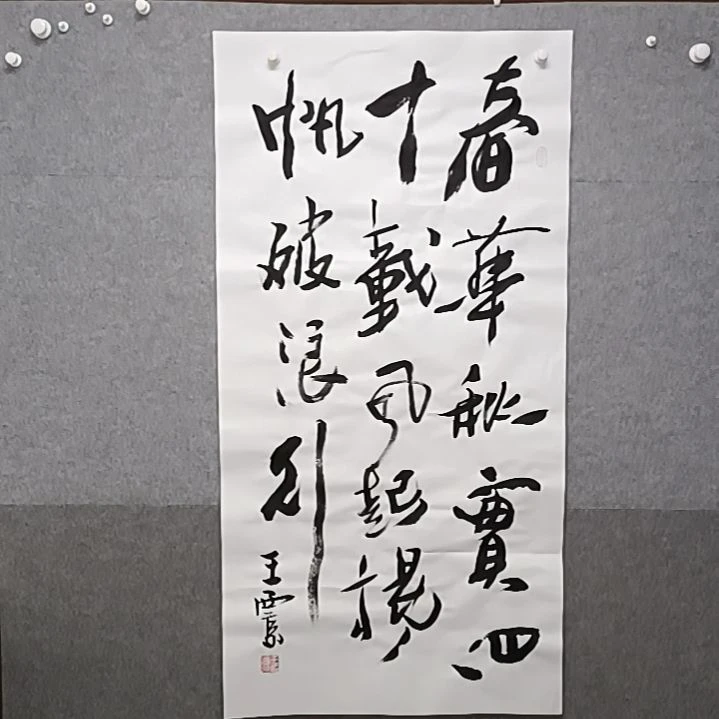 春華秋實四
十載風起揚
帆破浪行
王